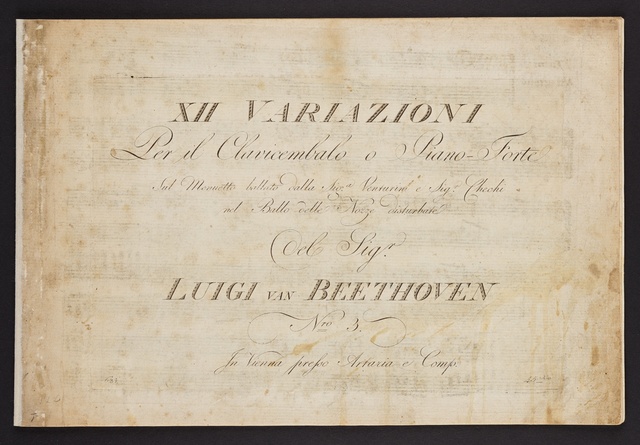 XII VARIAZIONI
Per il Clavicembalo o Piano-Forte
Sul Menuetto ballato dalla Sigra Venturini e Sigr Chechi
nel Ballo delle Nozze disturbate
Del Sigr
LUIGI VAN BEETHOVEN
Nro 3.
In Vienna presso Artaria e Comp.